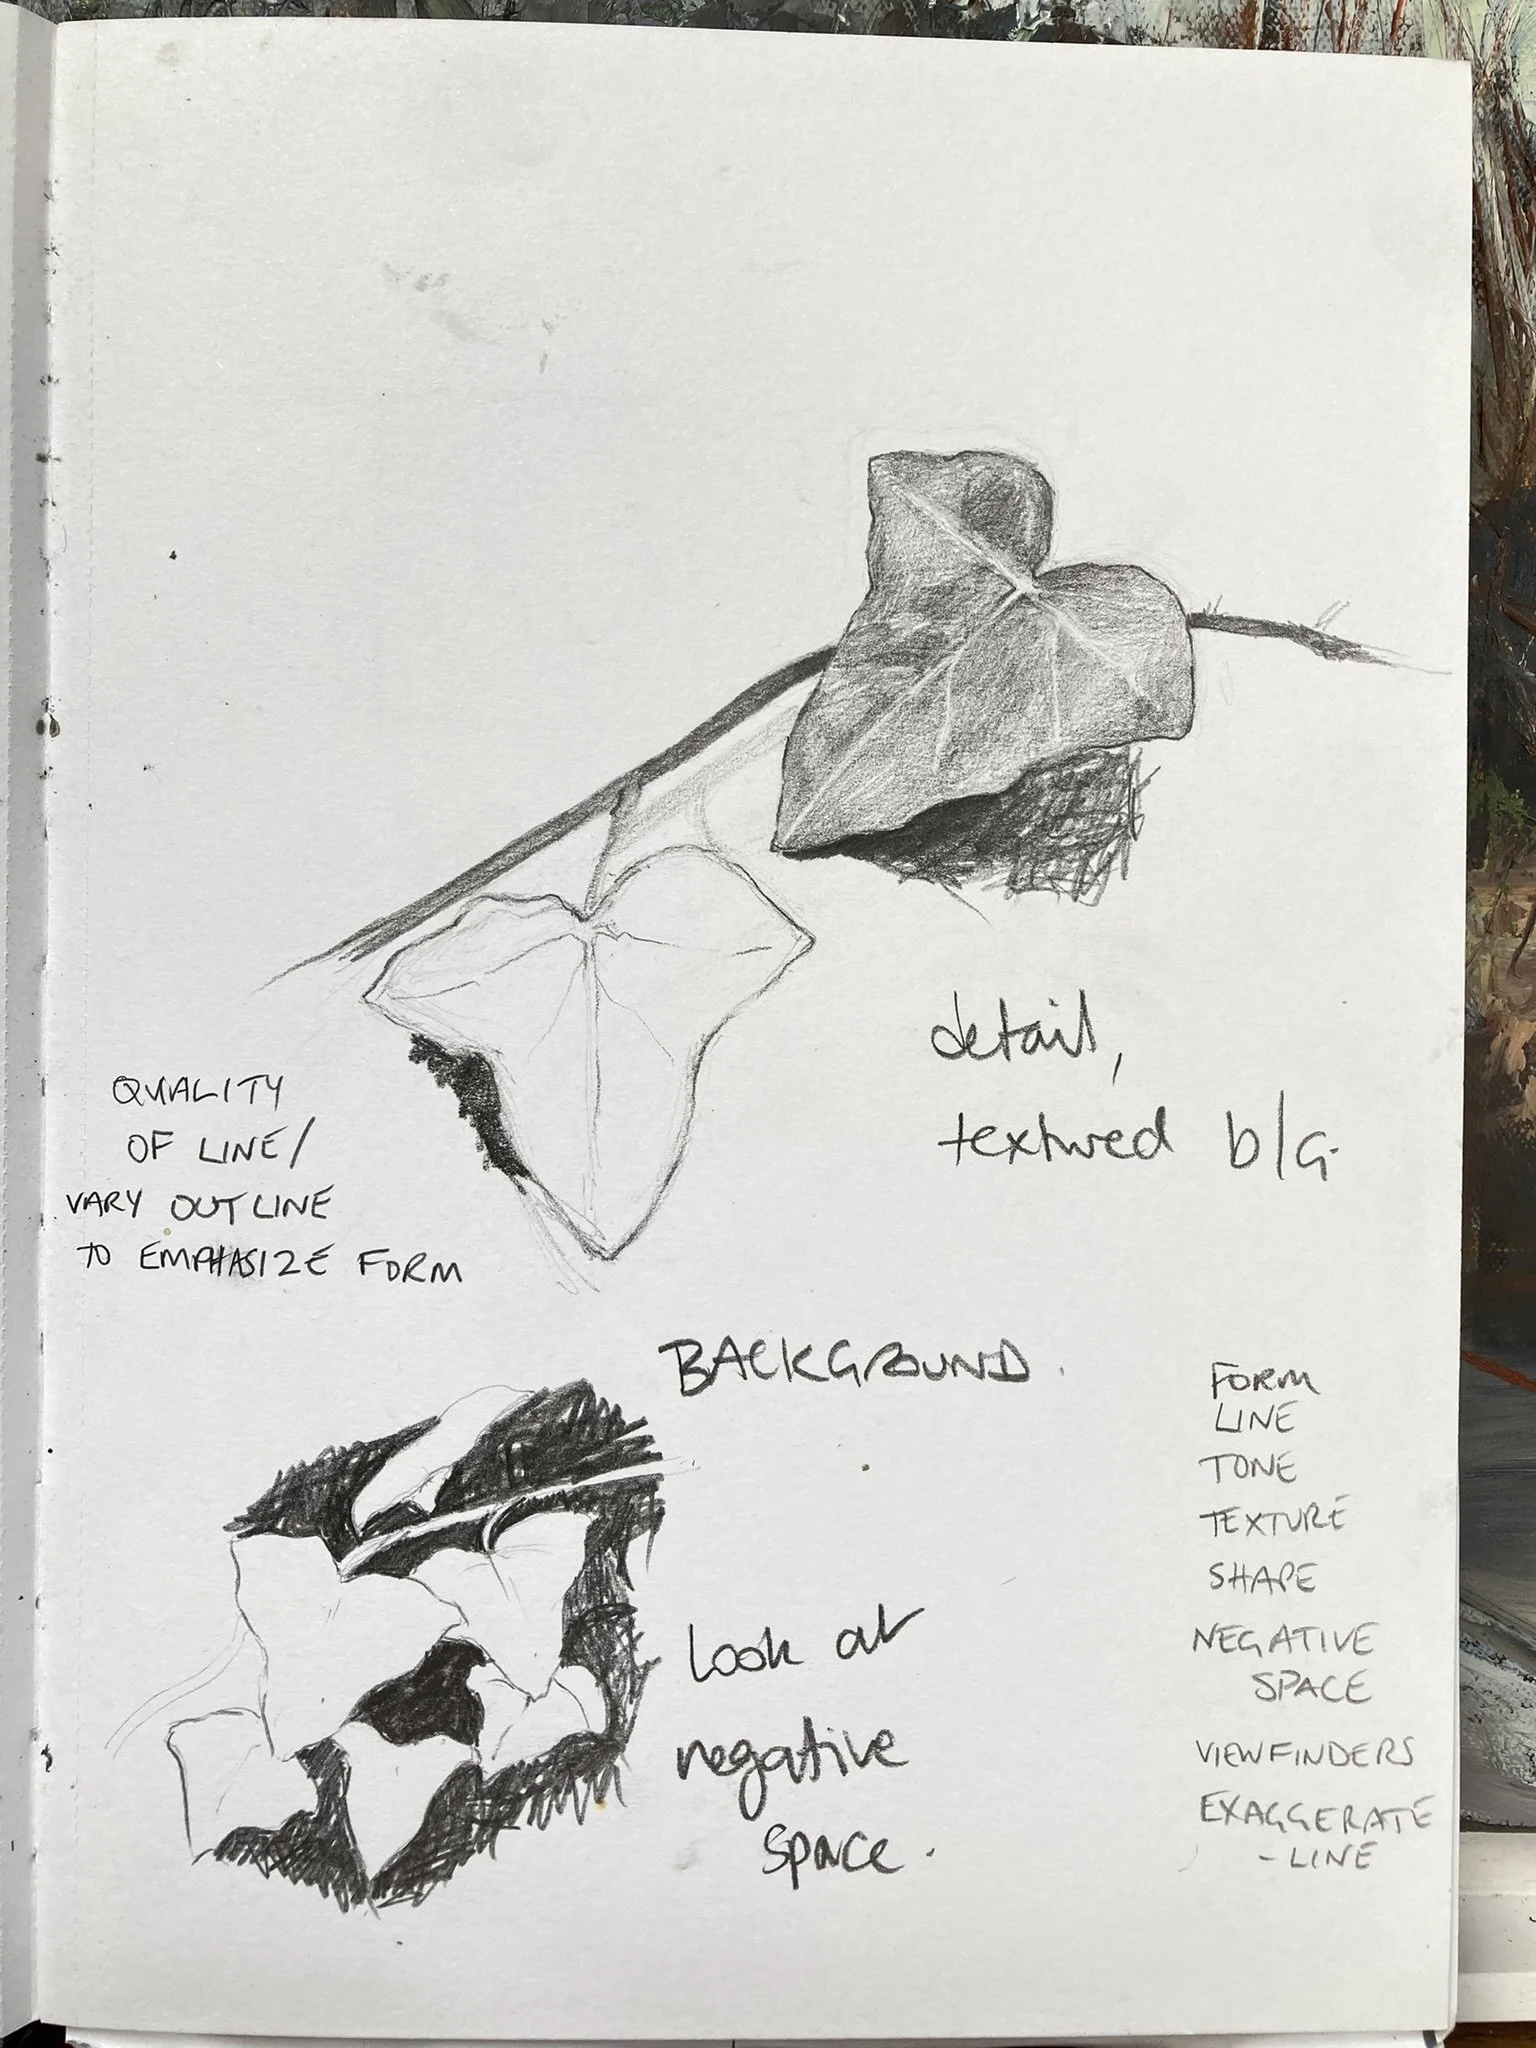 detail,
textured b/G.
QUALITY
OF LINE/
VARY OUTLINE
TO EMPHASIZE FORM
BACKGROUND.
look at
negative
space.
FORM
LINE
TONE
TEXTURE
SHAPE
NEGATIVE
SPACE
VIEWFINDERS
EXAGGERATE
- LINE